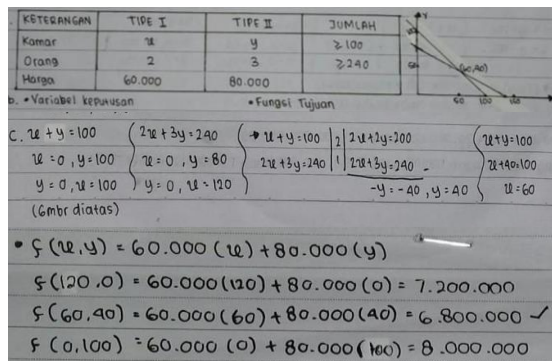 KETERANGAN TIPE I TIPE II JUMLAH
Kamar x y ≥ 100
Orang 2 3 ≥ 240
Harga 60.000 80.000
y
(60,40)
60 100 120
b. • Variabel keputusan • Fungsi Tujuan
C. x + y = 100 2x + 3y = 240 • x + y = 100 | 2 | 2x + 2y = 200 x + y = 100
x = 0, y = 100 x = 0, y = 80 2x + 3y = 240 | 1 | 2x + 3y = 240 - x + 40 = 100
y = 0, x = 100 y = 0, x = 120 -y = -40, y = 40 x = 60
(Gmbr diatas)
• f(x,y) = 60.000 (x) + 80.000 (y)
f(120,0) = 60.000 (120) + 80.000 (0) = 7.200.000
f(60,40) = 60.000 (60) + 80.000 (40) = 6.800.000 ✓
f(0,100) = 60.000 (0) + 80.000 (100) = 8.000.000